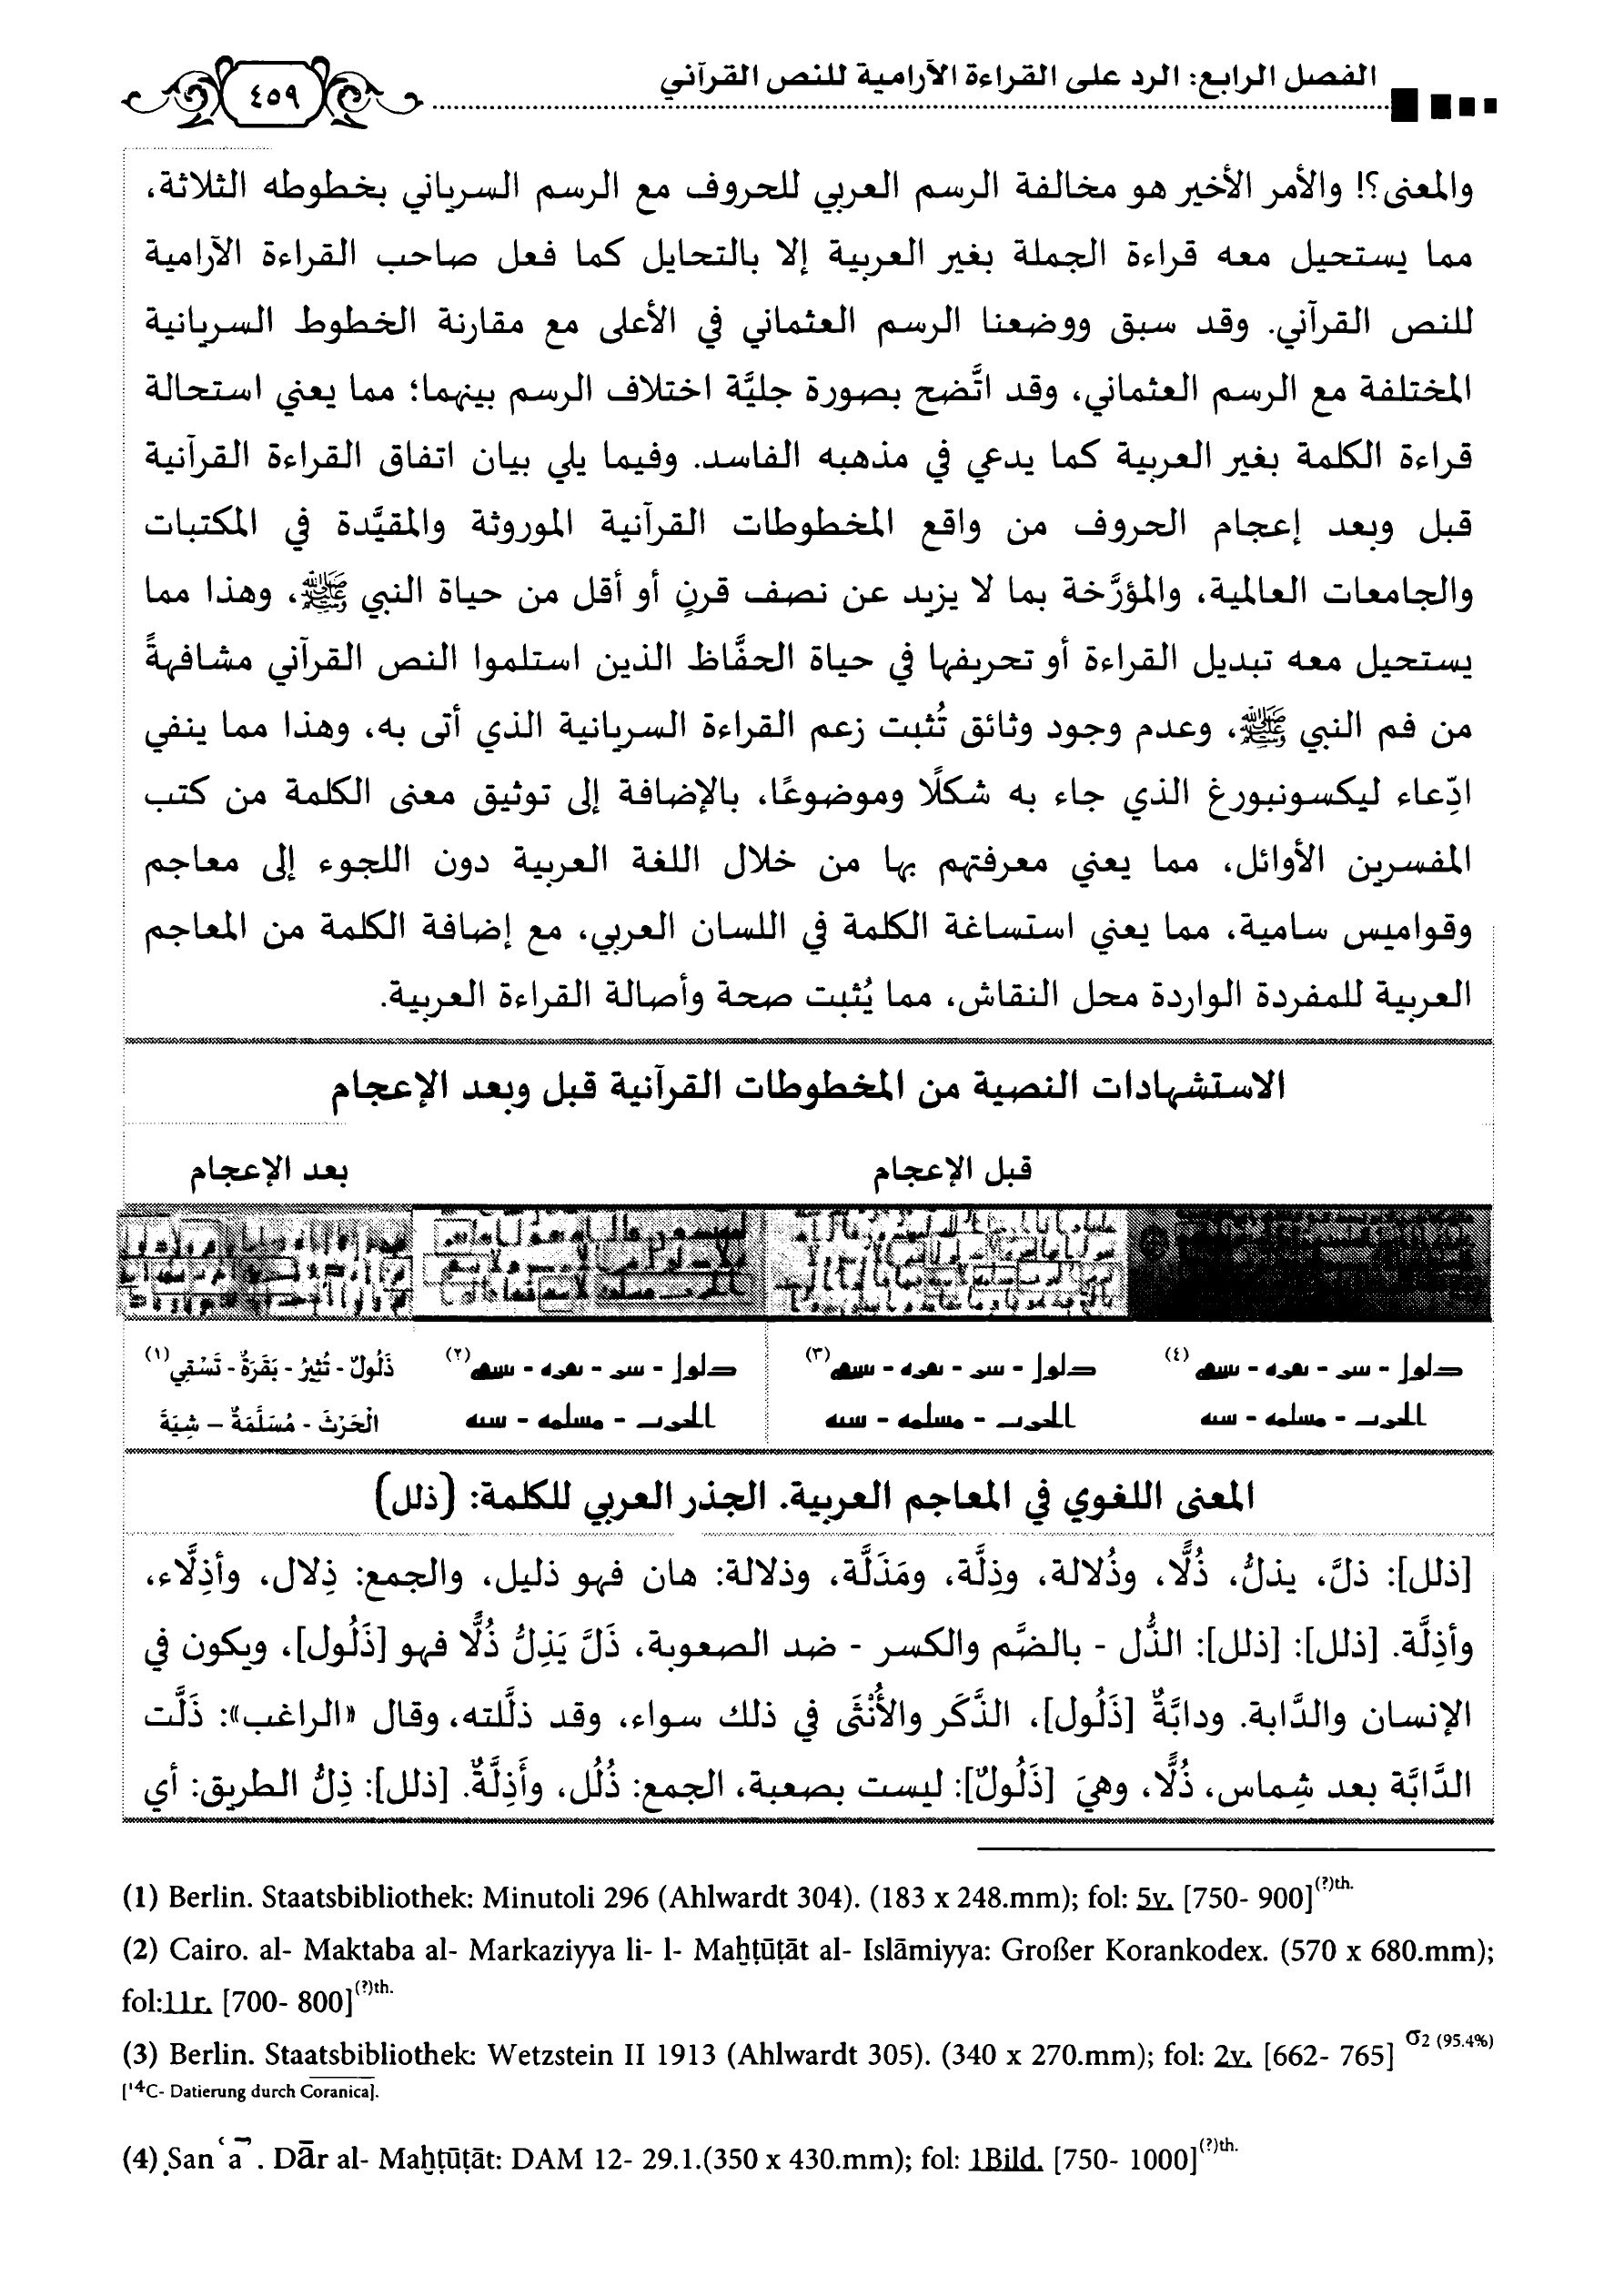 الفصل الرابع: الرد على القراءة الآرامية للنص القرآني
٤٥٩
والمعنى؟! والأمر الأخير هو مخالفة الرسم العربي للحروف مع الرسم السرياني بخطوطه الثلاثة،
مما يستحيل معه قراءة الجملة بغير العربية إلا بالتحايل كما فعل صاحب القراءة الآرامية
للنص القرآني. وقد سبق ووضعنا الرسم العثماني في الأعلى مع مقارنة الخطوط السريانية
المختلفة مع الرسم العثماني، وقد اتَّضح بصورة جليَّة اختلاف الرسم بينهما؛ مما يعني استحالة
قراءة الكلمة بغير العربية كما يدعي في مذهبه الفاسد. وفيما يلي بيان اتفاق القراءة القرآنية
قبل وبعد إعجام الحروف من واقع المخطوطات القرآنية الموروثة والمقيَّدة في المكتبات
والجامعات العالمية، والمؤرَّخة بما لا يزيد عن نصف قرنٍ أو أقل من حياة النبي ﷺ، وهذا مما
يستحيل معه تبديل القراءة أو تحريفها في حياة الحفَّاظ الذين استلموا النص القرآني مشافهةً
من فم النبي ﷺ، وعدم وجود وثائق تُثبت زعم القراءة السريانية الذي أتى به، وهذا مما ينفي
ادِّعاء ليكسونبورغ الذي جاء به شكلًا وموضوعًا، بالإضافة إلى توثيق معنى الكلمة من كتب
المفسرين الأوائل، مما يعني معرفتهم بها من خلال اللغة العربية دون اللجوء إلى معاجم
وقواميس سامية، مما يعني استساغة الكلمة في اللسان العربي، مع إضافة الكلمة من المعاجم
العربية للمفردة الواردة محل النقاش، مما يُثبت صحة وأصالة القراءة العربية.
الاستشهادات النصية من المخطوطات القرآنية قبل وبعد الإعجام
قبل الإعجام
بعد الإعجام
(٤)
(٣)
(٢)
ذَلُولٌ - تُثِيرُ - بَقَرَةٌ - تَسْقِي (١)
الْحَرْثَ - مُسَلَّمَةٌ – شِيَةَ
المعنى اللغوي في المعاجم العربية. الجذر العربي للكلمة: (ذلل)
[ذلل]: ذلَّ، يذلُّ، ذُلًّا، وذُلالة، وذِلَّة، ومَذَلَّة، وذلالة: هان فهو ذليل، والجمع: ذِلال، وأذِلَّاء،
وأذِلَّة. [ذلل]: [ذلل]: الذُّل - بالضَّم والكسر - ضد الصعوبة، ذَلَّ يَذِلُّ ذُلًّا فهو [ذَلُول]، ويكون في
الإنسان والدَّابة. ودابَّةٌ [ذَلُول]، الذَّكَر والأُنْثَى في ذلك سواء، وقد ذلَّلته، وقال «الراغب»: ذَلَّت
الدَّابَّة بعد شِماس، ذُلًّا، وهيَ [ذَلُولٌ]: ليست بصعبة، الجمع: ذُلُل، وأَذِلَّةٌ. [ذلل]: ذِلُّ الطريق: أي
(1) Berlin. Staatsbibliothek: Minutoli 296 (Ahlwardt 304). (183 x 248.mm); fol: 5v. [750- 900](?)th.
(2) Cairo. al- Maktaba al- Markaziyya li- l- Maḫṭūṭāt al- Islāmiyya: Großer Korankodex. (570 x 680.mm);
fol:11r. [700- 800](?)th.
(3) Berlin. Staatsbibliothek: Wetzstein II 1913 (Ahlwardt 305). (340 x 270.mm); fol: 2v. [662- 765] σ2 (95.4%)
[¹⁴C- Datierung durch Coranica].
(4) Ṣanʿāʾ. Dār al- Maḫṭūṭāt: DAM 12- 29.1.(350 x 430.mm); fol: 1Bild. [750- 1000](?)th.